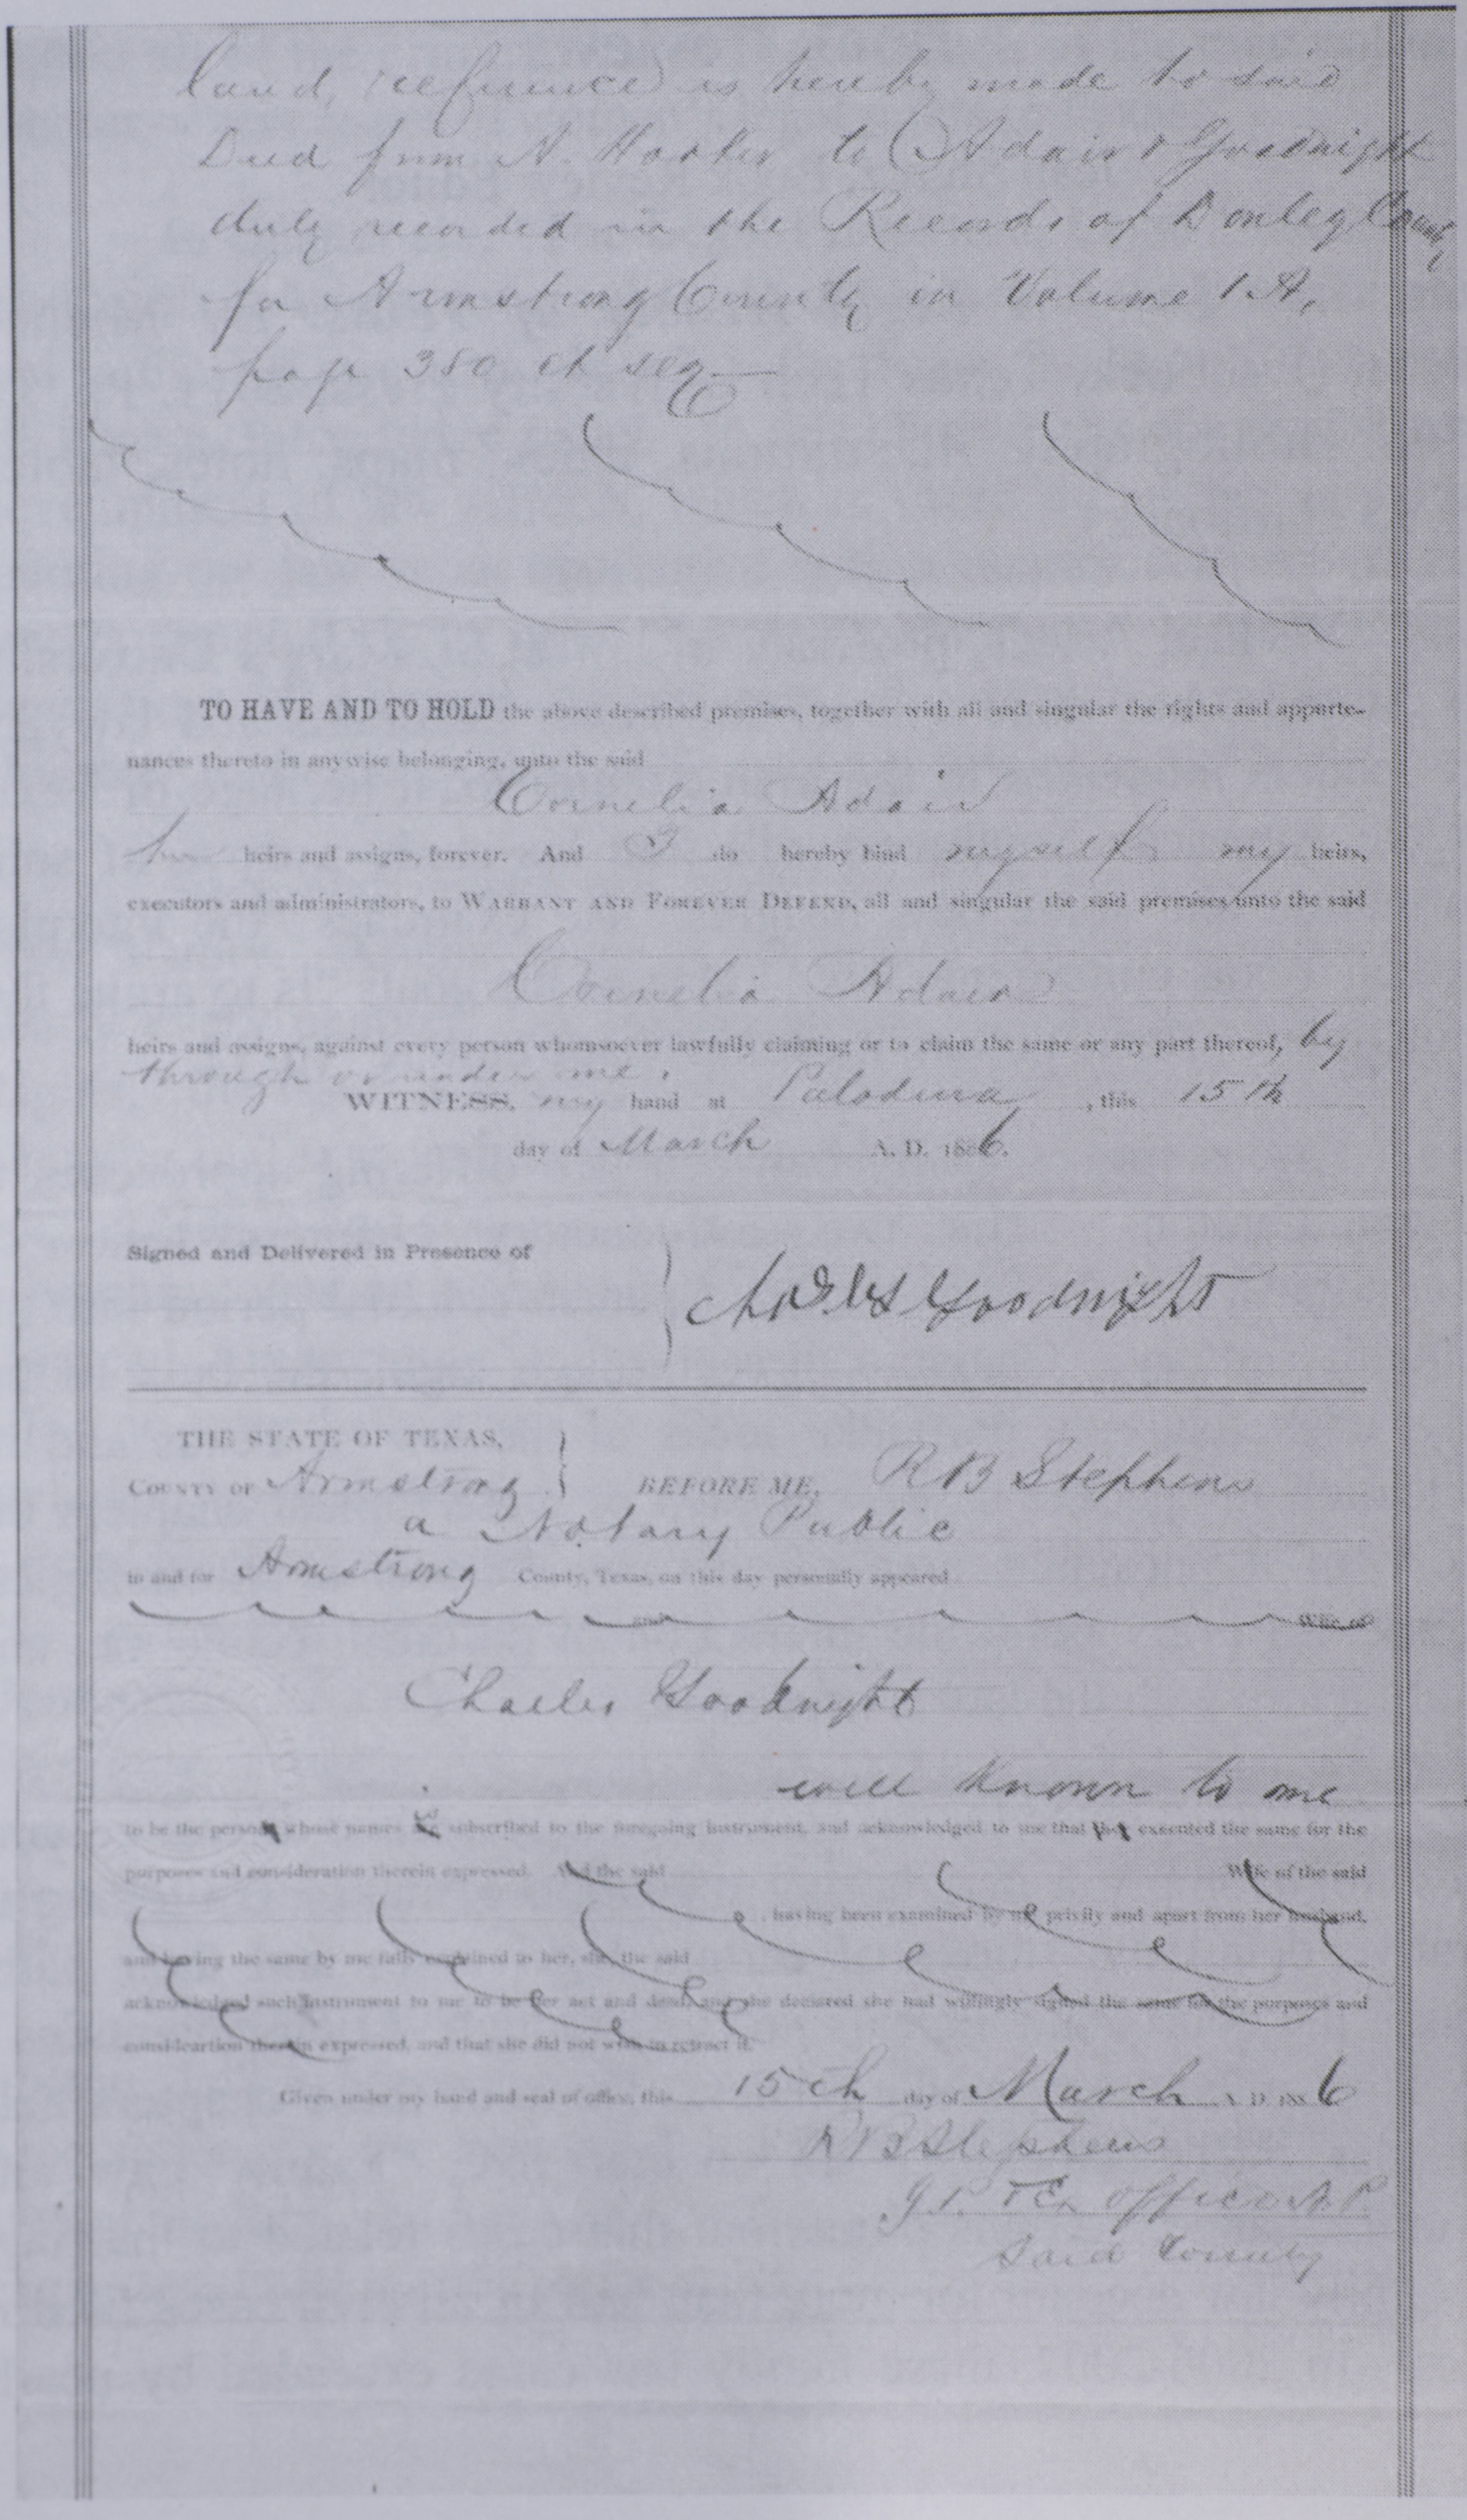 land, reference is hereby made to said
Deed from N. to Adair & Goodnight
duly recorded in the Records of Donley County
for Armstrong County in Volume 1 A,
page 380 et seq
TO HAVE AND TO HOLD the above described premises, together with all and singular the rights and apparte-
nances thereto in anywise belonging, unto the said
Cornelia Adair
her heirs and assigns, forever. And I do hereby bind myself my heirs,
executors and administrators, to WARRANT AND FOREVER DEFEND, all and singular the said premises unto the said
Cornelia Adair
heirs and assigns, against every person whomsoever lawfully claiming or to claim the same or any part thereof, by
through or under me.
WITNESS, my hand at Paladura, this 15th
day of March A. D. 1886.
Signed and Delivered in Presence of
Goodnight
THE STATE OF TEXAS,
COUNTY OF Armstrong BEFORE ME, R B Stephens
a Notary Public
in and for Armstrong County, Texas, on this day personally appeared
and Wife of
Charles Goodnight
well known to me
to be the person whose names is subscribed to the foregoing instrument, and acknowledged to me that he executed the same for the
purposes and consideration therein expressed. And the said Wife of the said
, having been examined by me privily and apart from her husband,
and having the same by me fully explained to her, she, the said
acknowledged such instrument to me to be her act and deed, and she declared she had willingly signed the same for the purposes and
consideartion therein expressed, and that she did not wish to retract it.
Given under my hand and seal of office, this 15th day of March A. D. 1886
R B Stephens
J P. & Ex officio N. P.
Said County